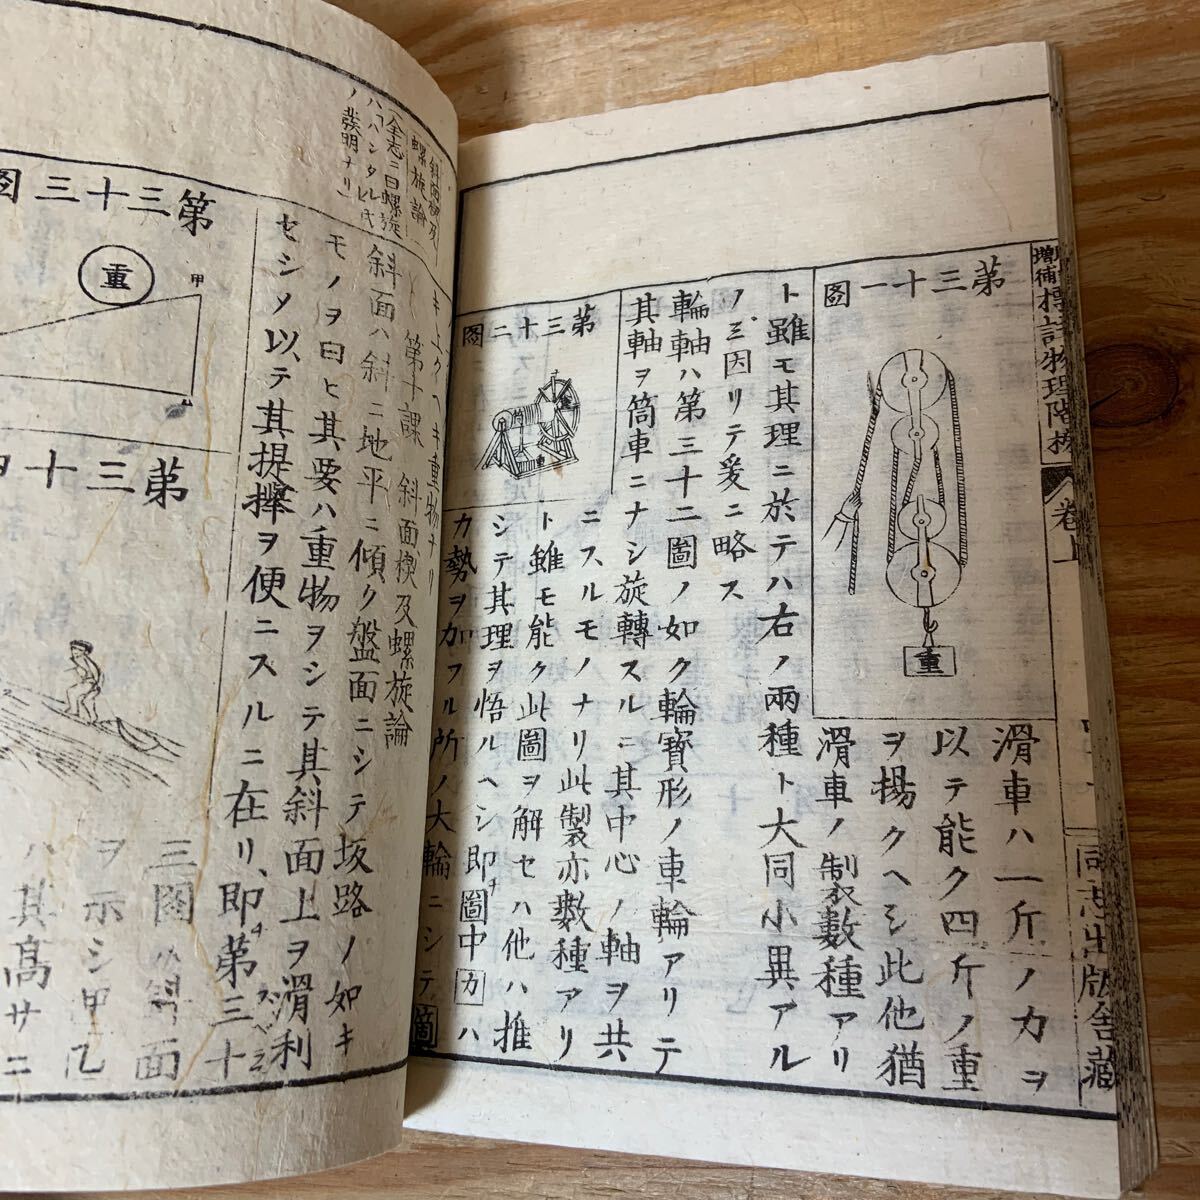 増補
標註物理階梯
卷上
同志出版舎藏
第三十一圖
重
滑車ハ一斤ノ力ヲ
以テ能ク四斤ノ重
ヲ揚クヘシ此他猶
滑車ノ製數種アリ
ト雖モ其理ニ於テハ右ノ兩種ト大同小異アル
ノミ因リテ爰ニ略ス
輪軸ハ第三十二圖ノ如ク輪寶形ノ車輪アリテ
其軸ヲ筒車ニナシ旋轉スルニ其中心ノ軸ヲ共
第三十二圖
ニスルモノナリ此製亦數種アリ
ト雖モ能ク此圖ヲ解セハ他ハ推
シテ其理ヲ悟ルヘシ即チ圖中カハ
力勢ヲ加フル所ノ大輪ニシテ箇
キ上クヘキ重物ナリ
第十課 斜面楔及螺旋論
斜面ハ斜ニ地平ニ傾ク盤面ニシテ坂路ノ如キ
モノヲ曰ヒ其要ハ重物ヲシテ其斜面上ヲ滑利
セシメ以テ其提擧ヲ便ニスルニ在リ即チ第三十
斜面楔及
螺旋論
全志ニ曰螺旋
ハハンタル氏
ノ發明ナリ
第三十三圖
重
甲
三圖ハ斜面
ヲ示シ甲乙
ハ其高サニ
第三十四